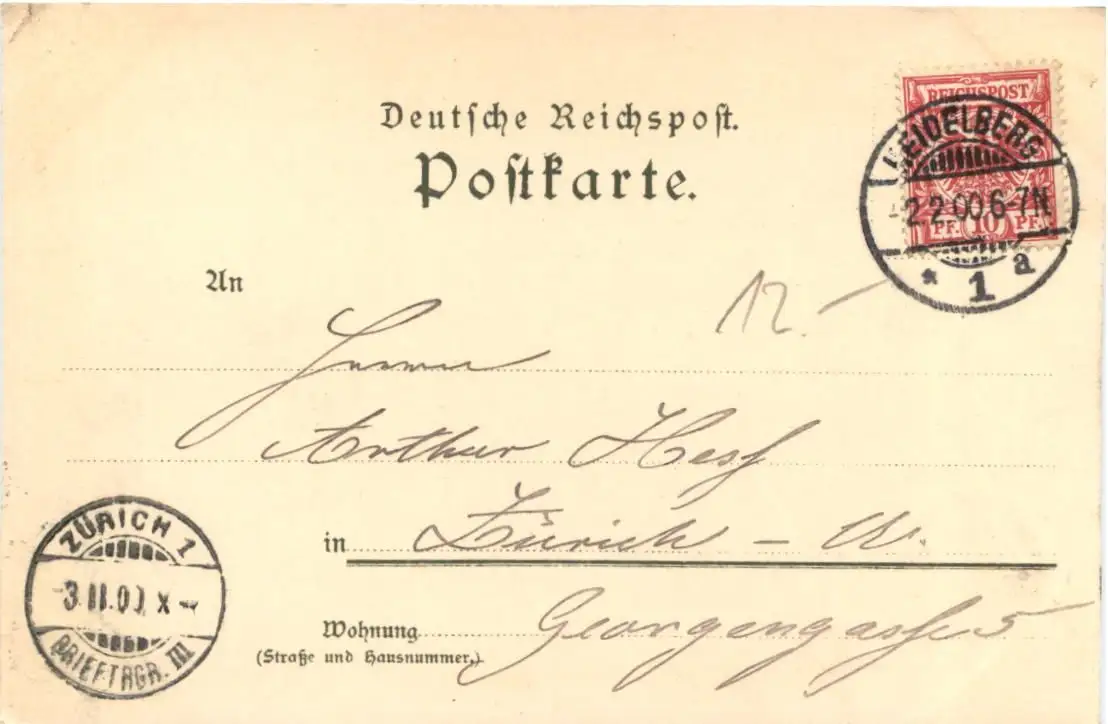 Deutsche Reichspost.
Postkarte.
REICHSPOST
PF. 10 PF.
HEIDELBERG
2.2.00.6-7N.
* 1 a
An
12.
Herrn
Arthur Hess
in Zürich - W.
Wohnung Georgengasse 5
(Straße und Hausnummer.)
ZÜRICH 1
-3.II.00. X -
BRIEFTRGR. III